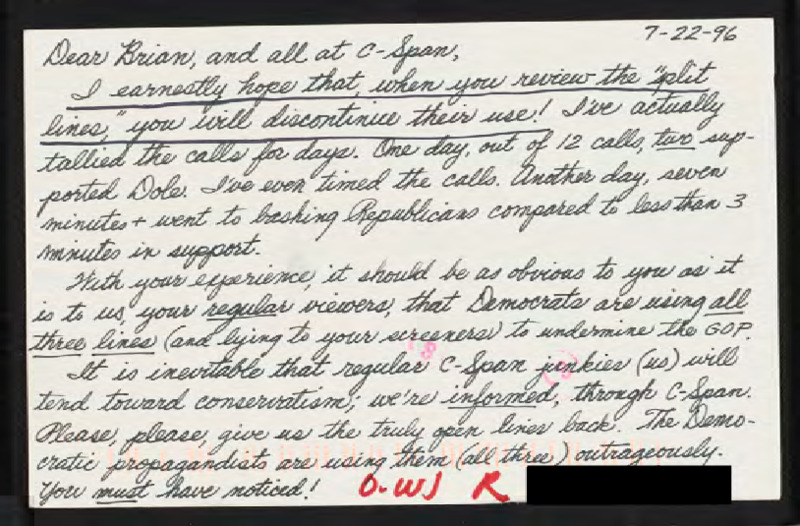 7-22-96
Dear Brian, and all at C-Span,
I earnestly hope that, when you review the "split
lines," you will discontinue their use! I've actually
tallied the calls for days. One day, out of 12 calls, two sup-
ported Dole. I've even timed the calls. Another day, seven
minutes+ went to bashing Republicans compared to less than 3
minutes in support.
With your experience, it should be as obvious to you as it
is to us, your regular viewers, that Democrats are using all
three lines (and lying to your screeners) to undermine the GOP.
It is inevitable that regular C-Span junkies (us) will
tend toward conservatism; we're informed, through C-Span.
Please, please, give us the truly open lines back. The Demo-
cratic propagandists are using them (all three) outrageously.
You must have noticed! O-WJ R